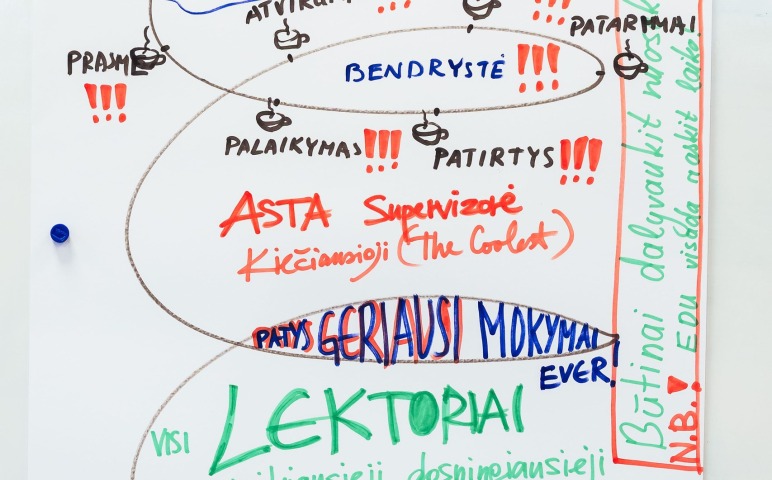 PATARIMAI
PRASMĖ
!!!
BENDRYSTĖ !!!
PALAIKYMAS !!!
PATIRTYS !!!
ASTA Supervizorė
Kiečiausioji (The Coolest)
PATYS GERIAUSI MOKYMAI
EVER!
VISI LEKTORIAI
Būtinai dalyvaukit
N.B.! EDU visada raskit laiko!